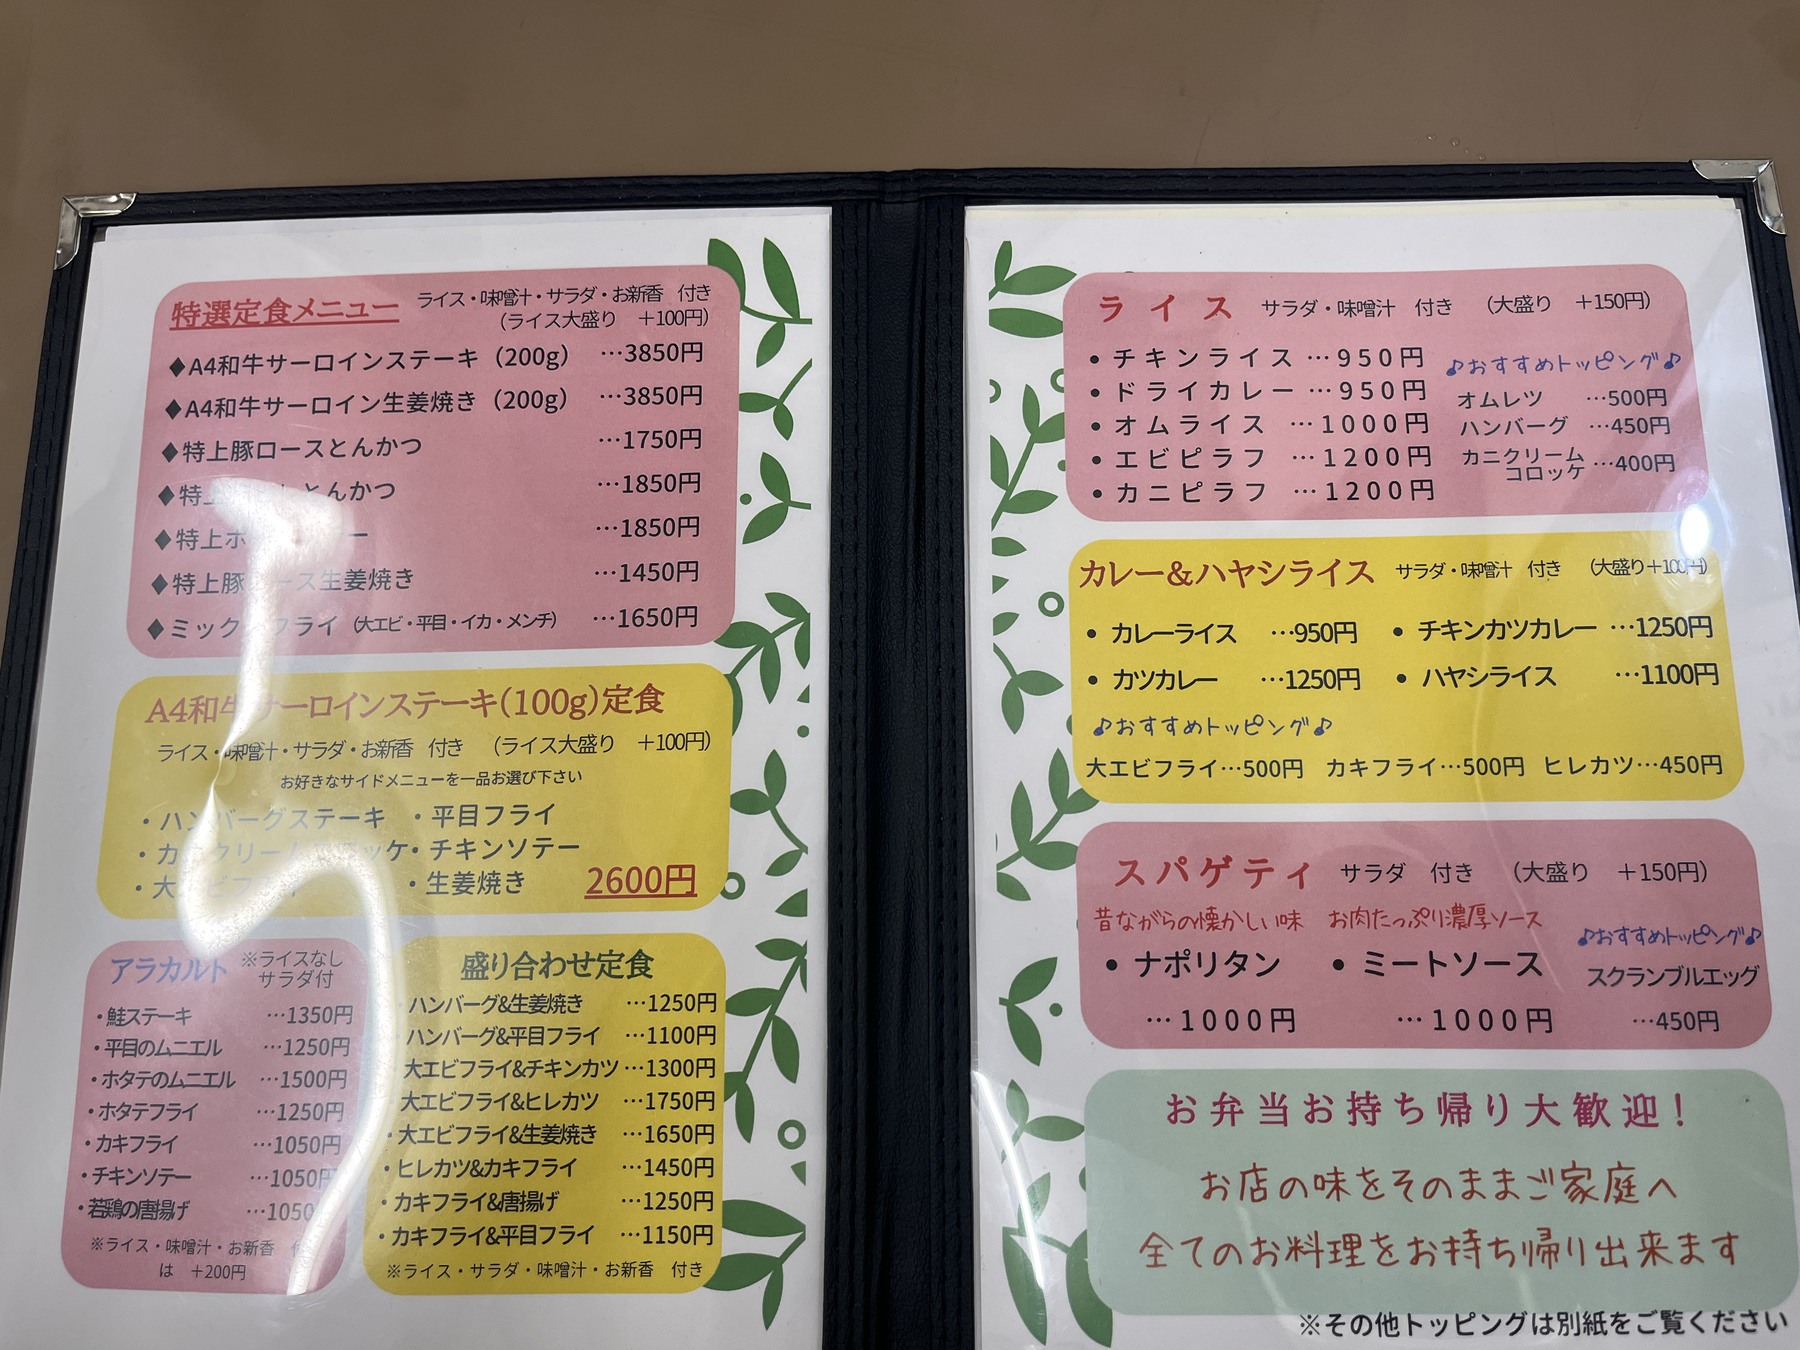 特選定食メニュー ライス・味噌汁・サラダ・お新香 付き
(ライス大盛り +100円)
◆A4和牛サーロインステーキ（200g） …3850円
◆A4和牛サーロイン生姜焼き（200g） …3850円
◆特上豚ロースとんかつ …1750円
◆特上 とんかつ …1850円
◆特上ホ ー …1850円
◆特上豚ロース生姜焼き …1450円
◆ミックスフライ（大エビ・平目・イカ・メンチ） …1650円
A4和牛サーロインステーキ(100g)定食
ライス・味噌汁・サラダ・お新香 付き （ライス大盛り +100円）
お好きなサイドメニューを一品お選び下さい
・ハンバーグステーキ ・平目フライ
・カニクリームコロッケ ・チキンソテー
・大エビフライ ・生姜焼き 2600円
アラカルト ※ライスなし
サラダ付
・鮭ステーキ …1350円
・平目のムニエル …1250円
・ホタテのムニエル …1500円
・ホタテフライ …1250円
・カキフライ …1050円
・チキンソテー …1050円
・若鶏の唐揚げ …1050
※ライス・味噌汁・お新香 付
は +200円
盛り合わせ定食
・ハンバーグ&生姜焼き …1250円
・ハンバーグ&平目フライ …1100円
大エビフライ&チキンカツ …1300円
大エビフライ&ヒレカツ …1750円
・大エビフライ&生姜焼き …1650円
・ヒレカツ&カキフライ …1450円
・カキフライ&唐揚げ …1250円
・カキフライ&平目フライ …1150円
※ライス・サラダ・味噌汁・お新香 付き
ライス サラダ・味噌汁 付き （大盛り +150円）
• チキンライス …950円
• ドライカレー …950円
• オムライス …1000円
• エビピラフ …1200円
• カニピラフ …1200円
♪おすすめトッピング♪
オムレツ …500円
ハンバーグ …450円
カニクリーム
コロッケ …400円
カレー&ハヤシライス サラダ・味噌汁 付き （大盛り+100円）
• カレーライス …950円 • チキンカツカレー …1250円
• カツカレー …1250円 • ハヤシライス …1100円
♪おすすめトッピング♪
大エビフライ…500円 カキフライ…500円 ヒレカツ…450円
スパゲティ サラダ 付き （大盛り +150円）
昔ながらの懐かしい味 お肉たっぷり濃厚ソース
• ナポリタン • ミートソース
…1000円 …1000円
♪おすすめトッピング♪
スクランブルエッグ
…450円
お弁当お持ち帰り大歓迎！
お店の味をそのままご家庭へ
全てのお料理をお持ち帰り出来ます
※その他トッピングは別紙をご覧ください